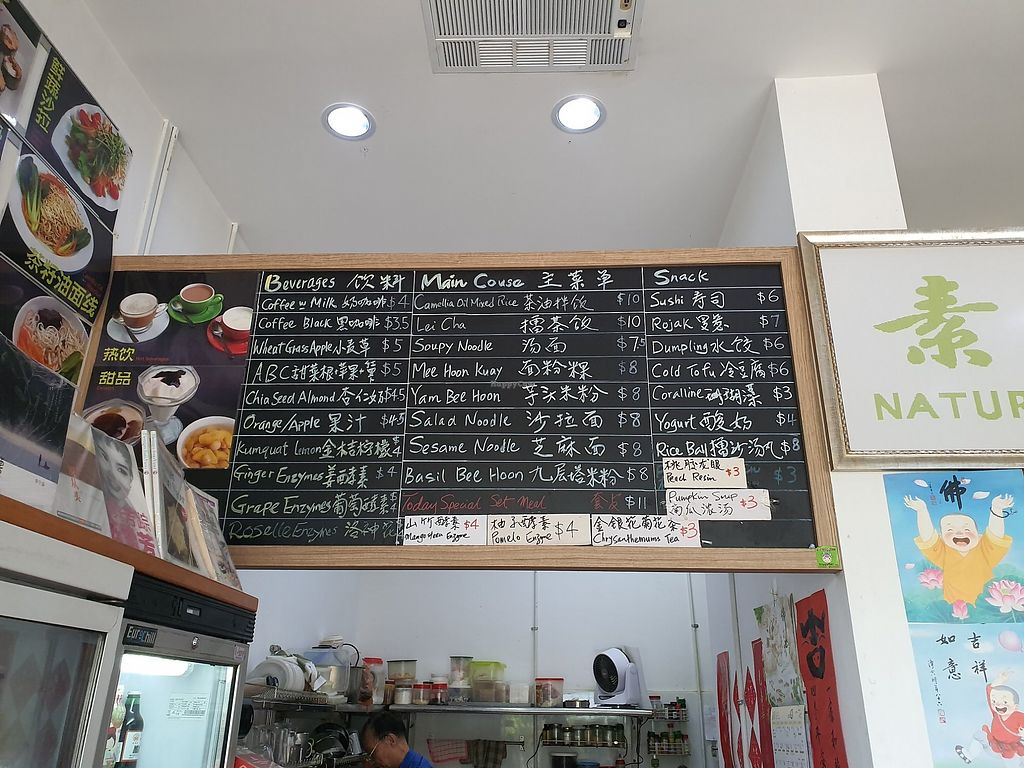 鲜蔬沙拉
茶籽油面线
热饮
甜品
Beverages 饮料
Coffee w Milk 奶咖啡 $4
Coffee Black 黑咖啡 $3.5
Wheat Grass Apple 小麦草 $5
ABC 甜菜根苹果 $5
Chia Seed Almond 杏仁奶 $4.5
Orange/Apple 果汁 $4.5
Kumquat Lemon 金桔柠檬 $4
Ginger Enzymes 姜酵素 $4
Grape Enzymes 葡萄酵素 $4
Roselle Enzymes 洛神花
Main Couse 主菜单
Camellia Oil Mixed Rice 茶油拌饭 $10
Lei Cha 擂茶饭 $10
Soupy Noodle 汤面 $7.5
Mee Hoon Kuay 面粉粿 $8
Yam Bee Hoon 芋头米粉 $8
Salad Noodle 沙拉面 $8
Sesame Noodle 芝麻面 $8
Basil Bee Hoon 九层塔米粉 $8
Today Special Set Meal 套 $11
山竹酵素 $4
Mangosteen Enzyme
柚子酵素 $4
Pomelo Enzyme
金银花菊花茶 $3
Chrysanthemums Tea
Snack
Sushi 寿司 $6
Rojak $7
Dumpling 水饺 $6
Cold Tofu 冷豆腐 $6
Coralline 珊瑚藻 $3
Yogurt 酸奶 $4
Rice Ball 擂沙汤丸 $8
Peach Resin $3
$3
Pumpkin Soup $3
南瓜浓汤
素
NATUR
佛
吉祥
如意
EuroChill
HappyCow